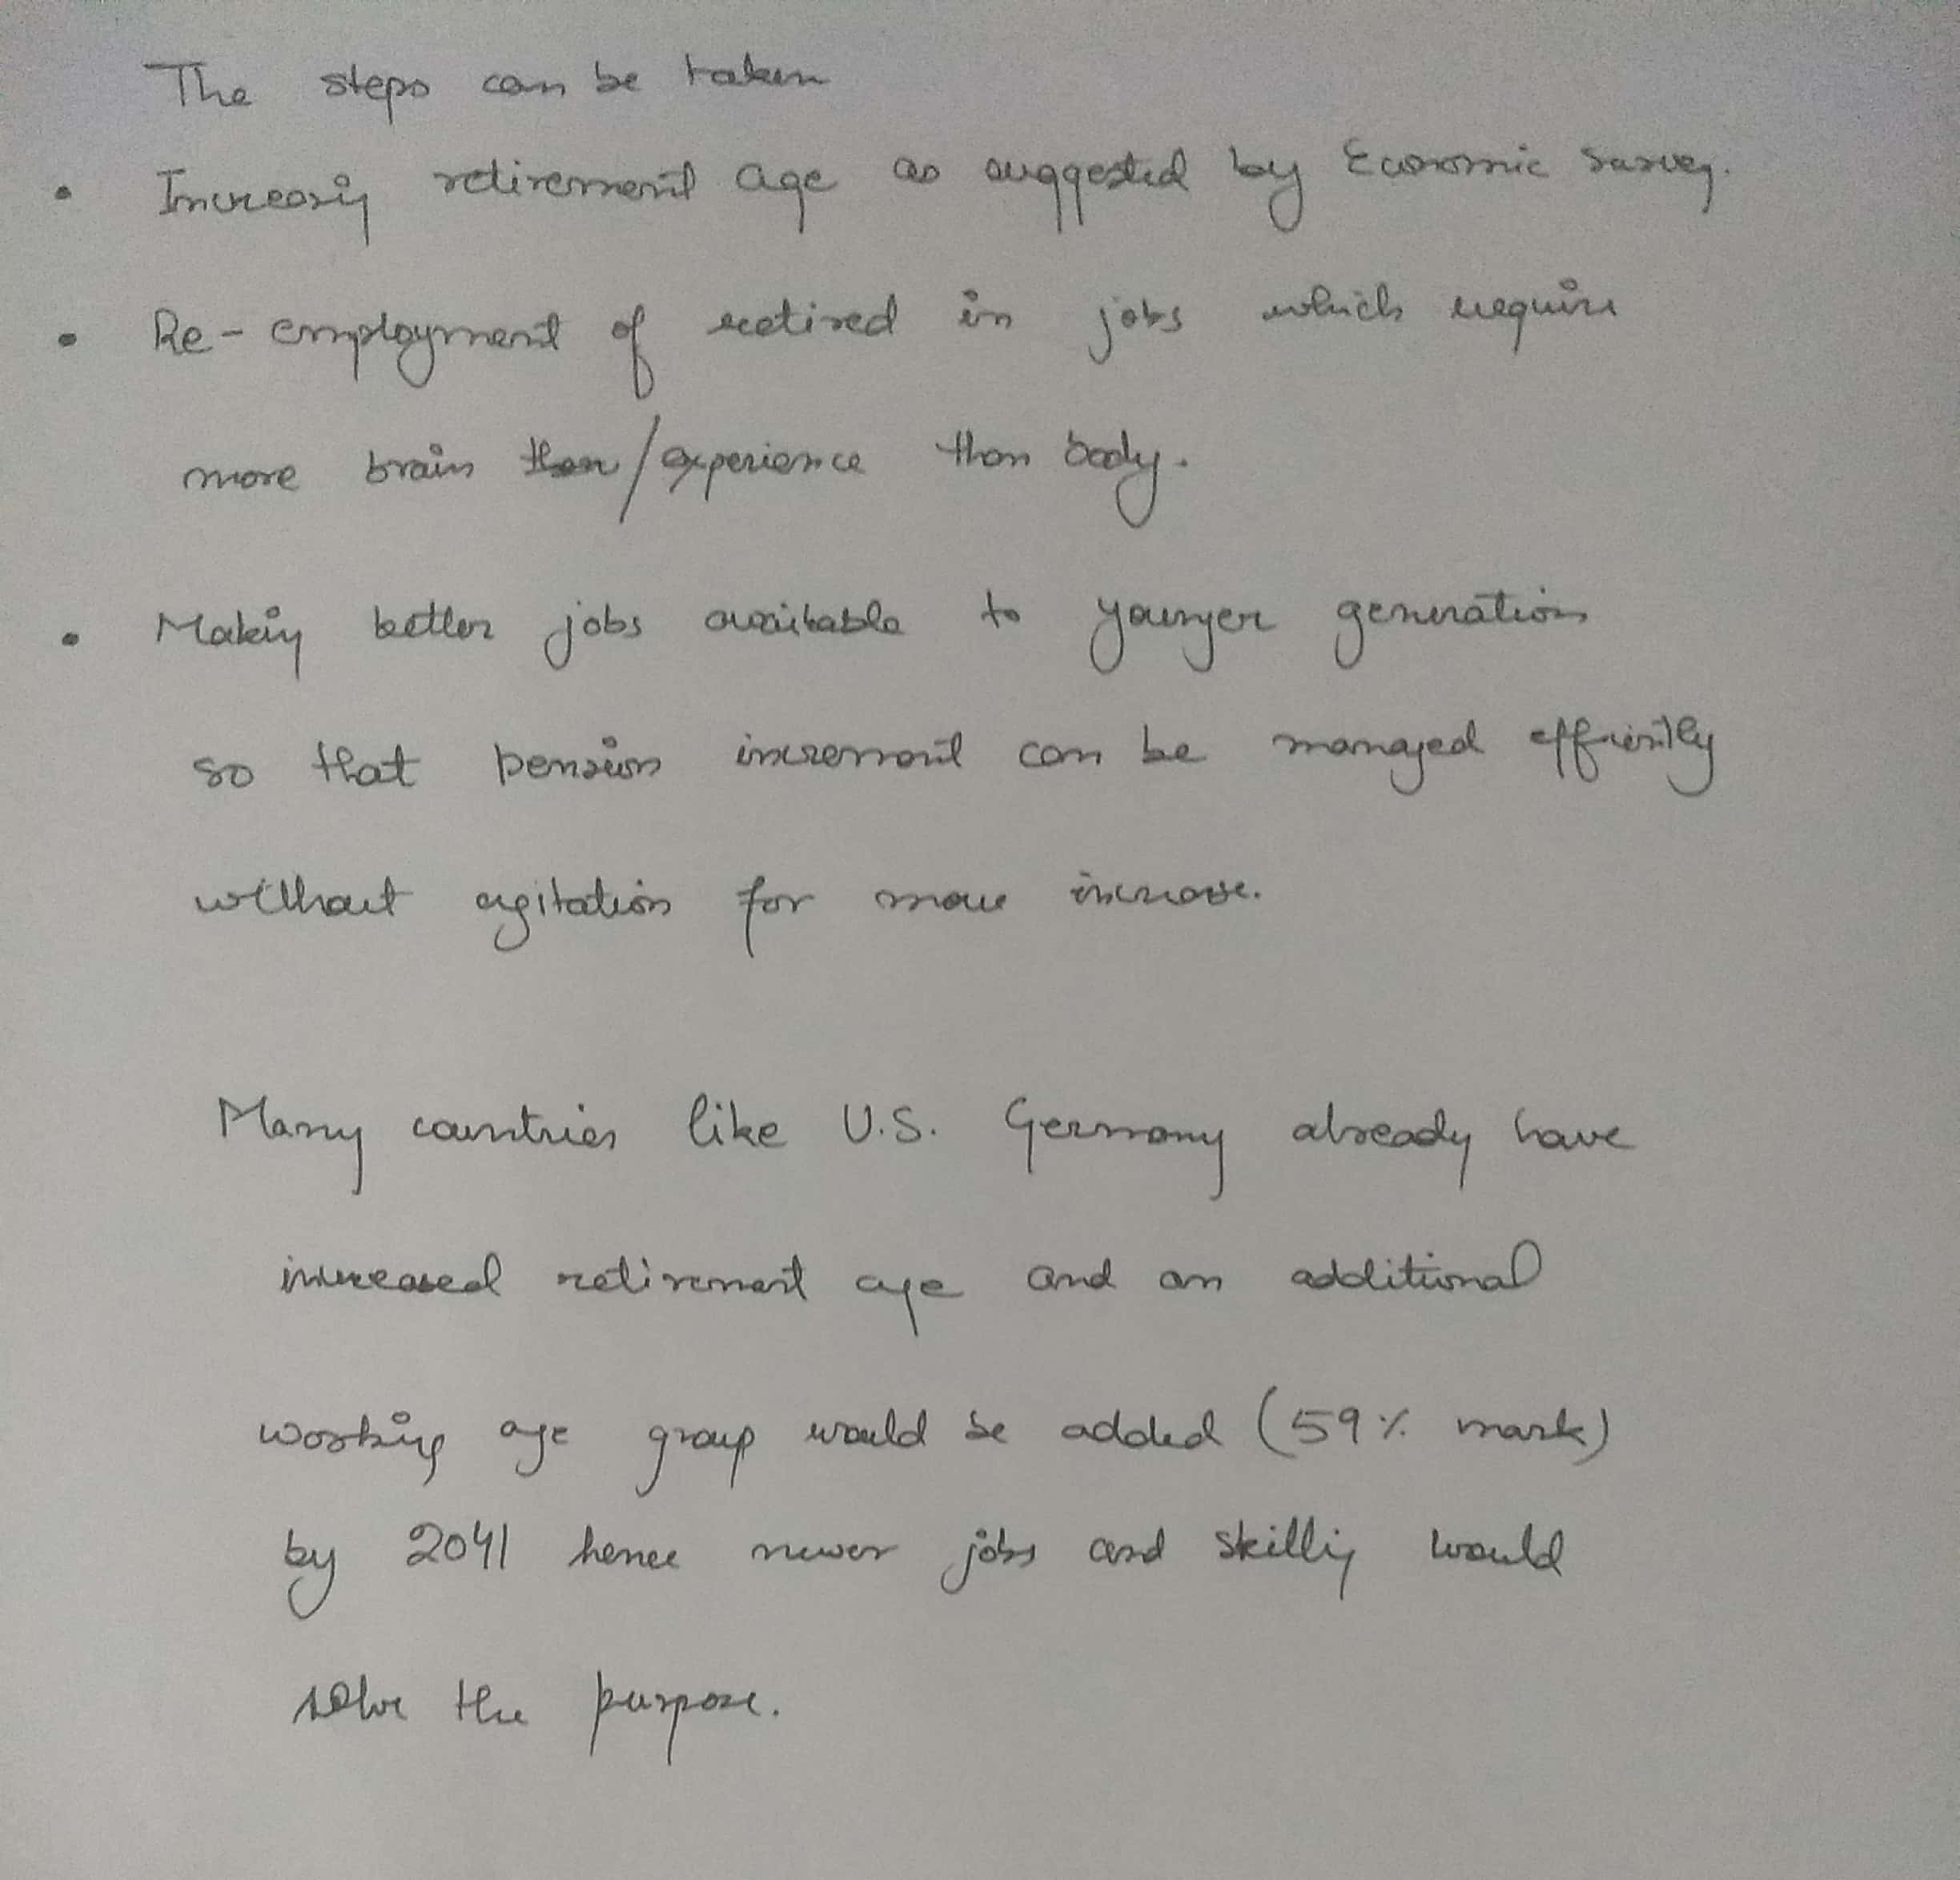 The steps can be taken
• Increasing retirement age as suggested by Economic Survey.
• Re-employment of retired in jobs which require
more brain than/experience than body.
• Making better jobs available to younger generation
so that pension increment can be managed efficiently
without agitation for more increase.
Many countries like U.S. Germany already have
increased retirement age and an additional
working age group would be added (59% mark)
by 2041 hence newer jobs and skilling would
solve the purpose.